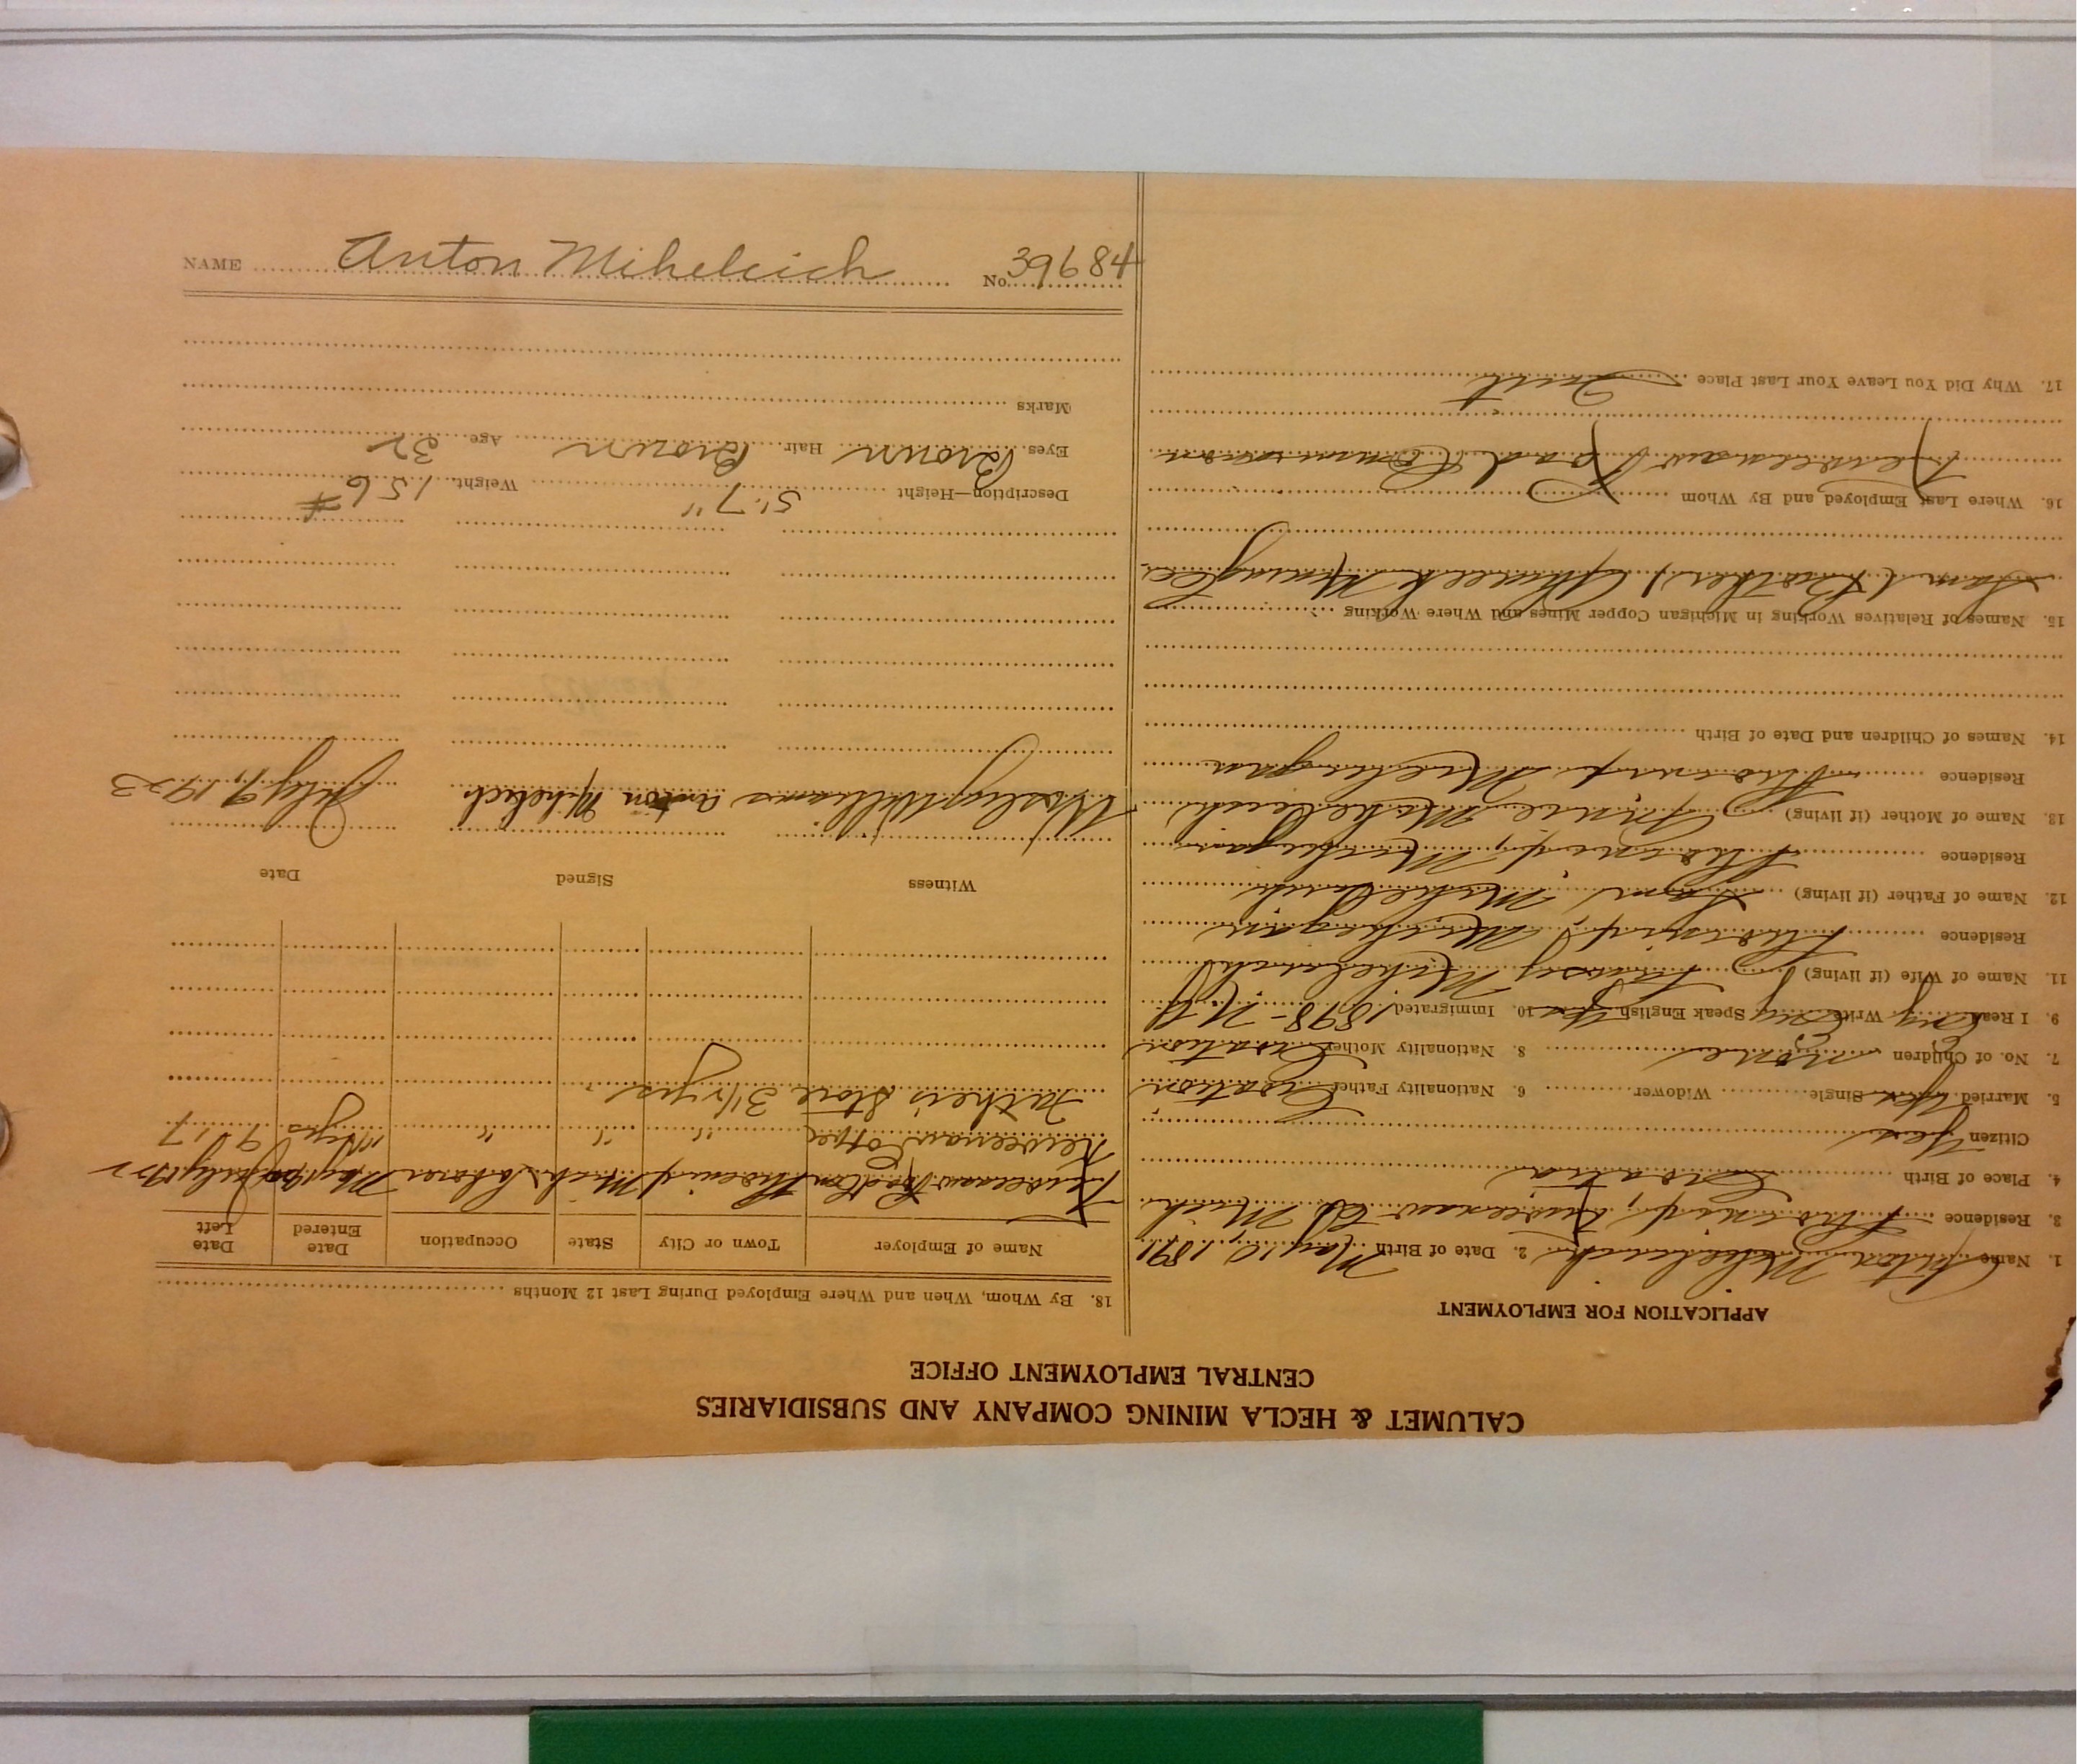 CALUMET & HECLA MINING COMPANY AND SUBSIDIARIES
CENTRAL EMPLOYMENT OFFICE
APPLICATION FOR EMPLOYMENT
1. Name Anton Mihelcich 2. Date of Birth May 10, 1891
3. Residence Phoenix, Keweenaw Co Mich
4. Place of Birth Croatia
Citizen Yes
5. Married Yes Single Widower 6. Nationality Father Croatian
7. No. of Children None 8. Nationality Mother Croatian
9. I Read Eng Write Eng Speak English Yes 10. Immigrated 1898 - N.Y.
11. Name of Wife (if living) Mihelcich
Residence Phoenix, Michigan
12. Name of Father (if living) Sam Mihelcich
Residence Phoenix, Michigan
13. Name of Mother (if living) Annie Mihelcich
Residence Phoenix, Michigan
14. Names of Children and Date of Birth
15. Names of Relatives Working in Michigan Copper Mines and Where Working
Sam (Brother) Ahmeek Mining Co.
16. Where Last Employed and By Whom
Keweenaw Road Commission
17. Why Did You Leave Your Last Place Quit
18. By Whom, When and Where Employed During Last 12 Months
Name of Employer Town or City State Occupation Date Entered Date Left
Keweenaw Phoenix Mich Laborer May July
Keweenaw Copper " " " yrs 9 17
Father's Store 3 1/2 yrs.
Witness Signed Date
Wesley Williams Anton Mihelcich July 9, 1923
Description—Height 5'7" Weight 156 #
Eyes Brown Hair Brown Age 32
Marks
NAME Anton Mihelcich No. 39684